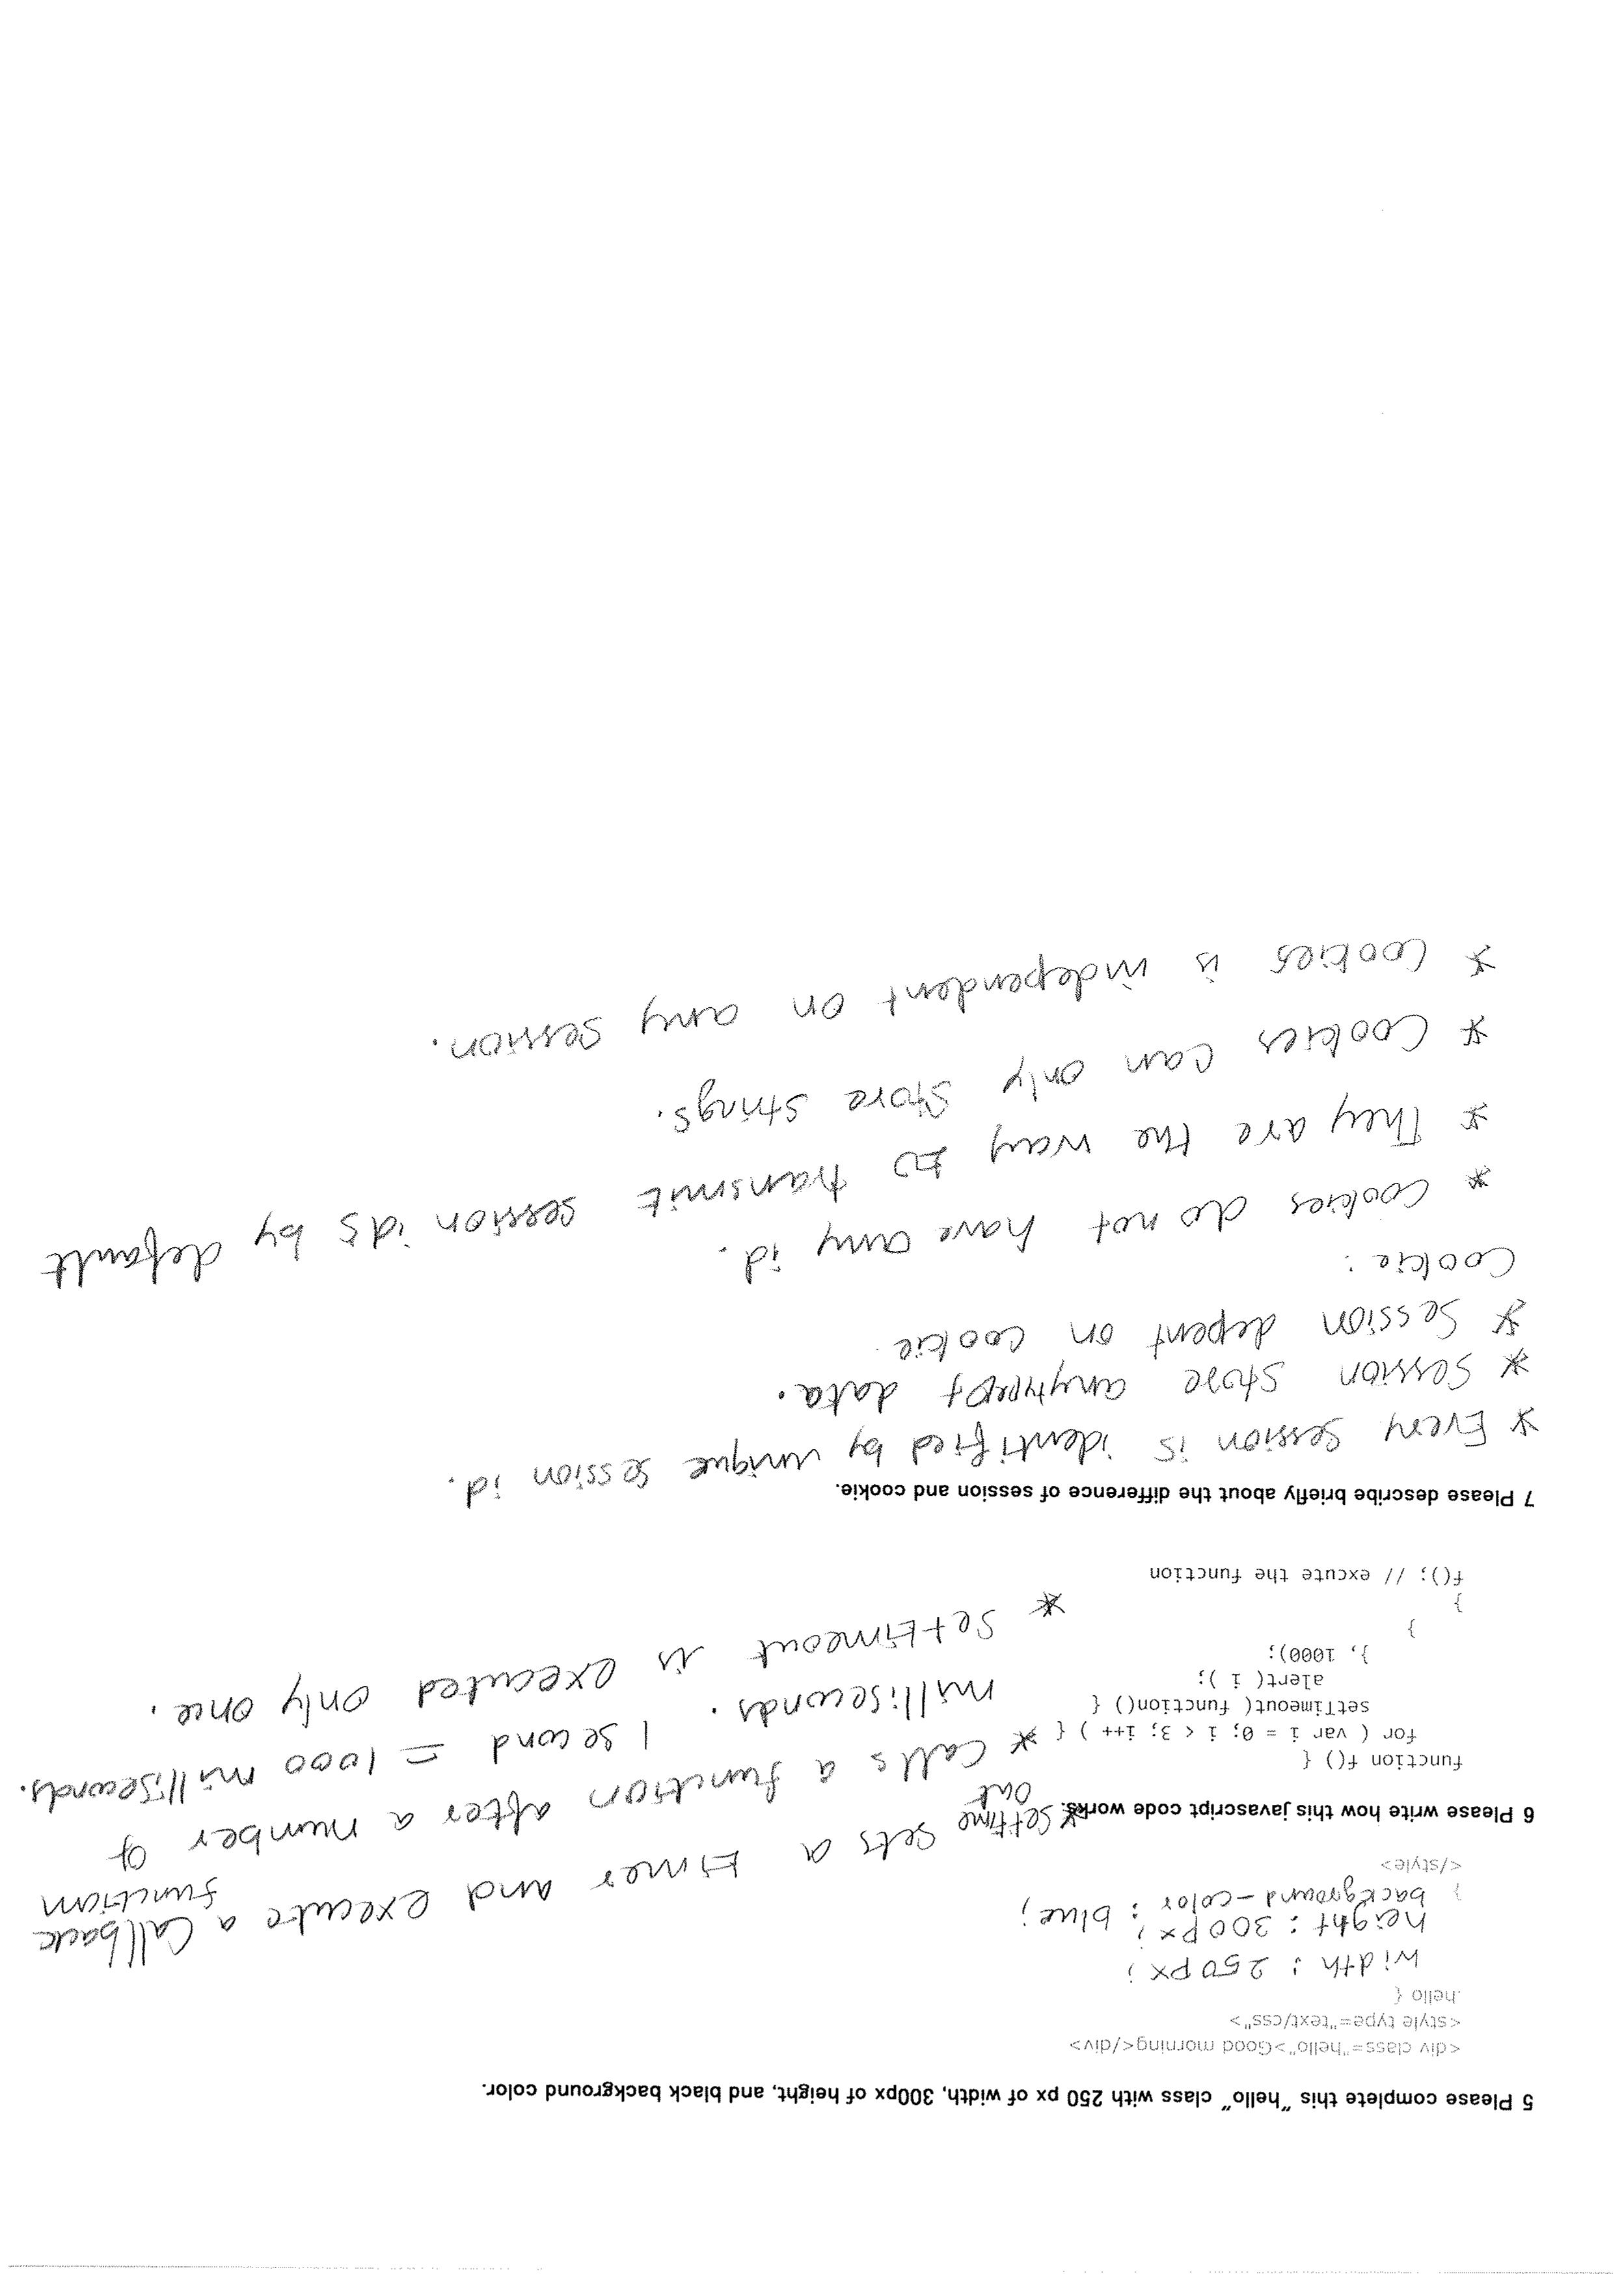 5 Please complete this "hello" class with 250 px of width, 300px of height, and black background color.
<div class="hello">Good morning</div>
<style type="text/css">
.hello {
width : 250px ;
height : 300px ;
background-color : blue ;
}
</style>
6 Please write how this javascript code works.
* Settime out sets a timer and execute a Callback function
function f() {
for ( var i = 0; i < 3; i++ ) {
setTimeout( function() {
alert( i );
}, 1000);
}
}
f(); // excute the function
* Calls a function after a number of
milliseconds. 1 second = 1000 milliseconds.
* Settimeout is executed only once.
7 Please describe briefly about the difference of session and cookie.
* Every session is identified by unique session id.
* Session store anytypeof data.
* Session depent on cookie
Cookie :
* Cookies do not have any id.
* They are the way to transmit session ids by default
* Cookies can only store strings.
* Cookies is independent on any session.